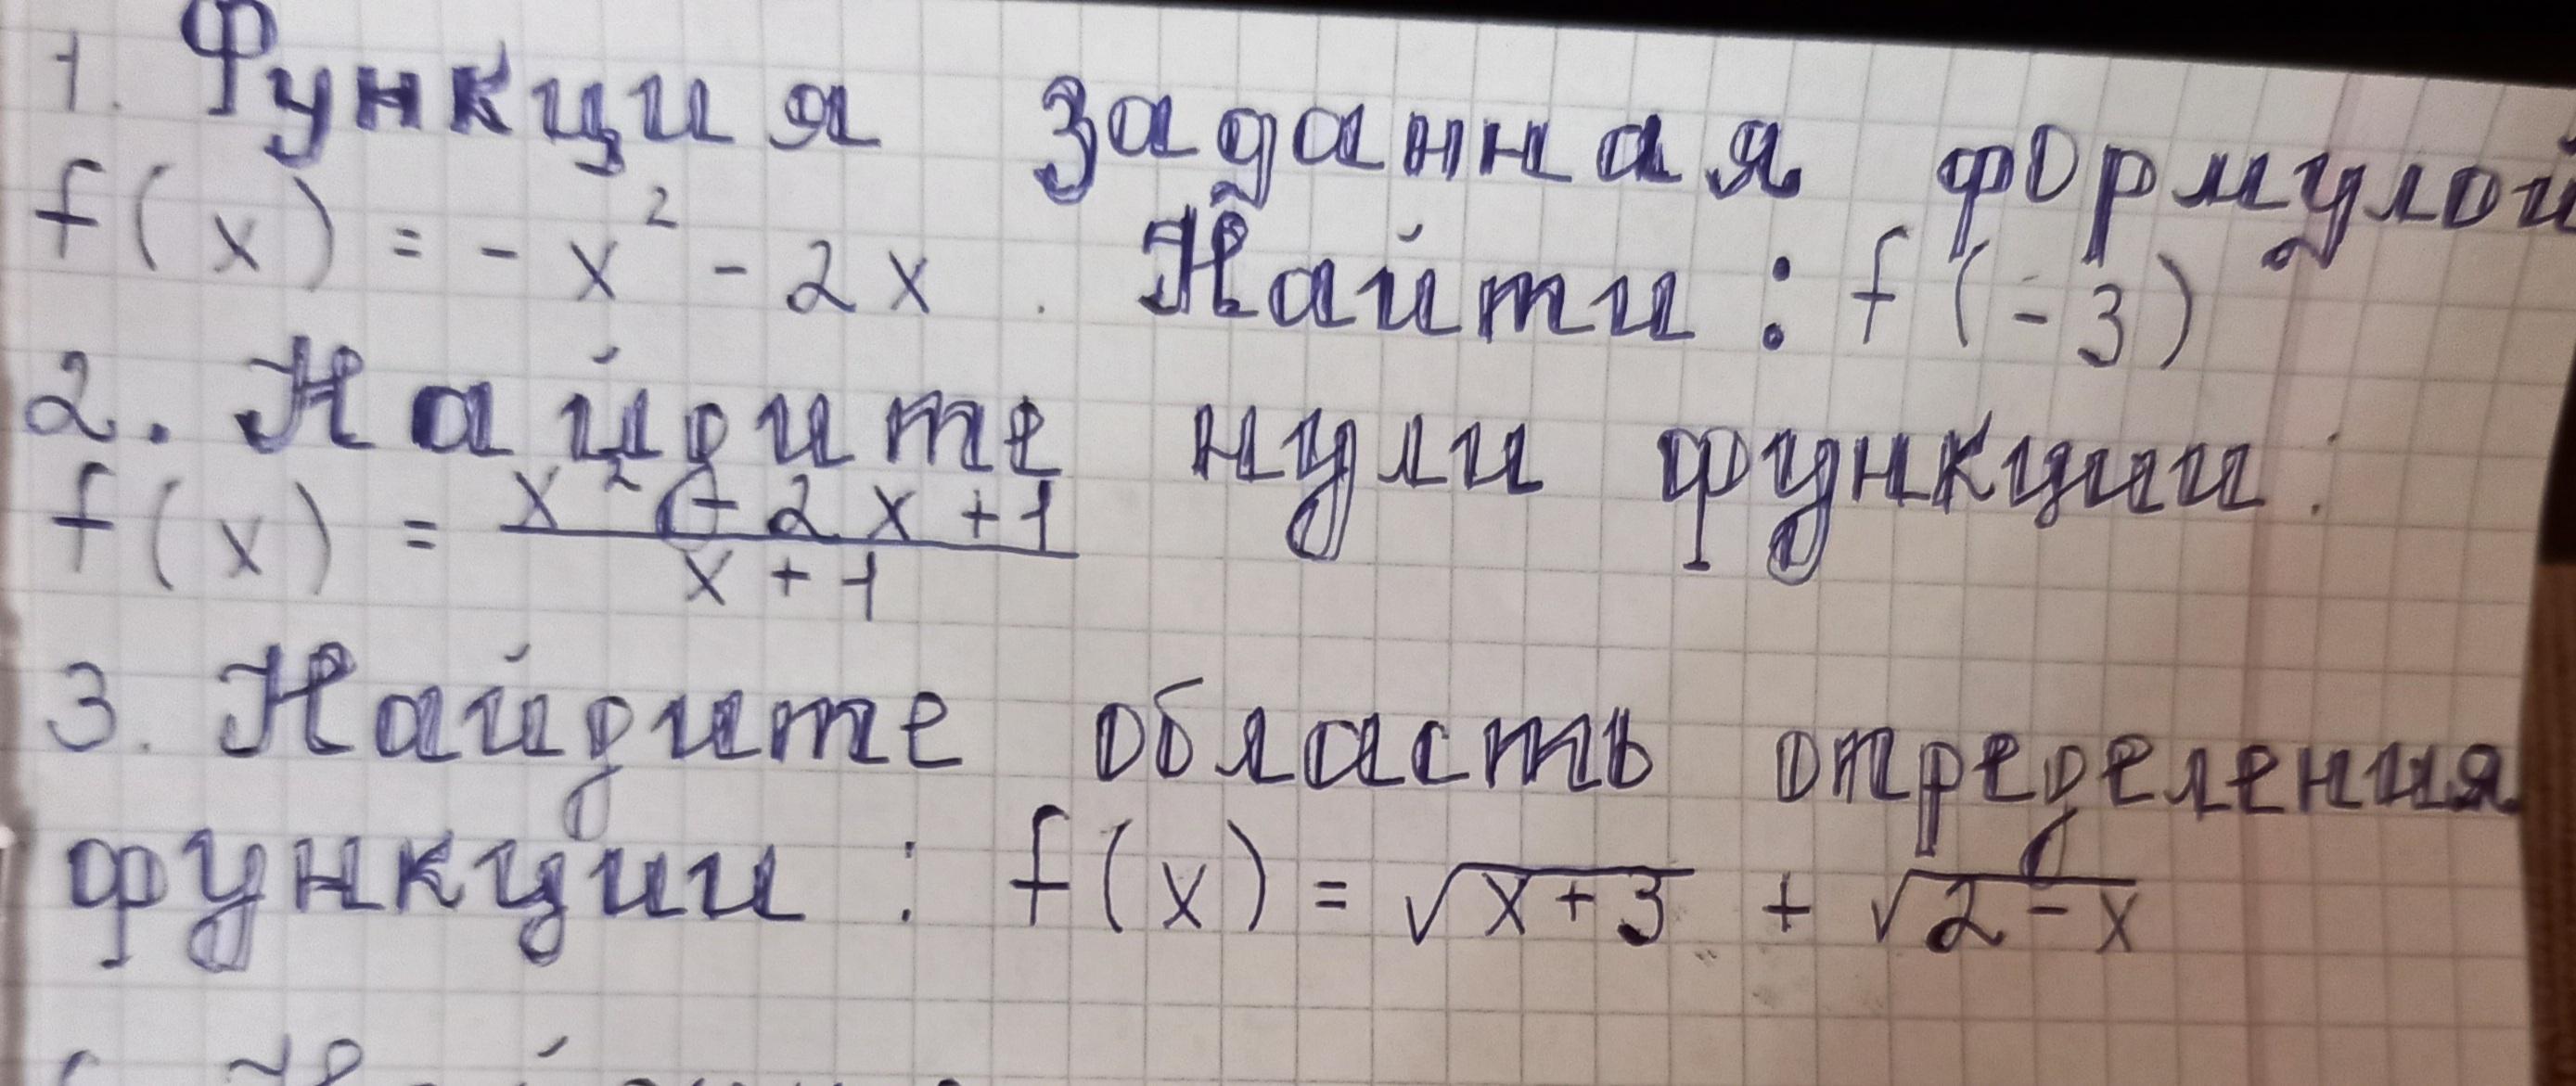 1. Функция заданная формулой
f(x) = - x² - 2x. Найти: f(-3)
2. Найдите нули функции:
f(x) = (x² - 2x + 1)/(x + 1)
3. Найдите область определения
функции: f(x) = √(x+3) + √(2-x)